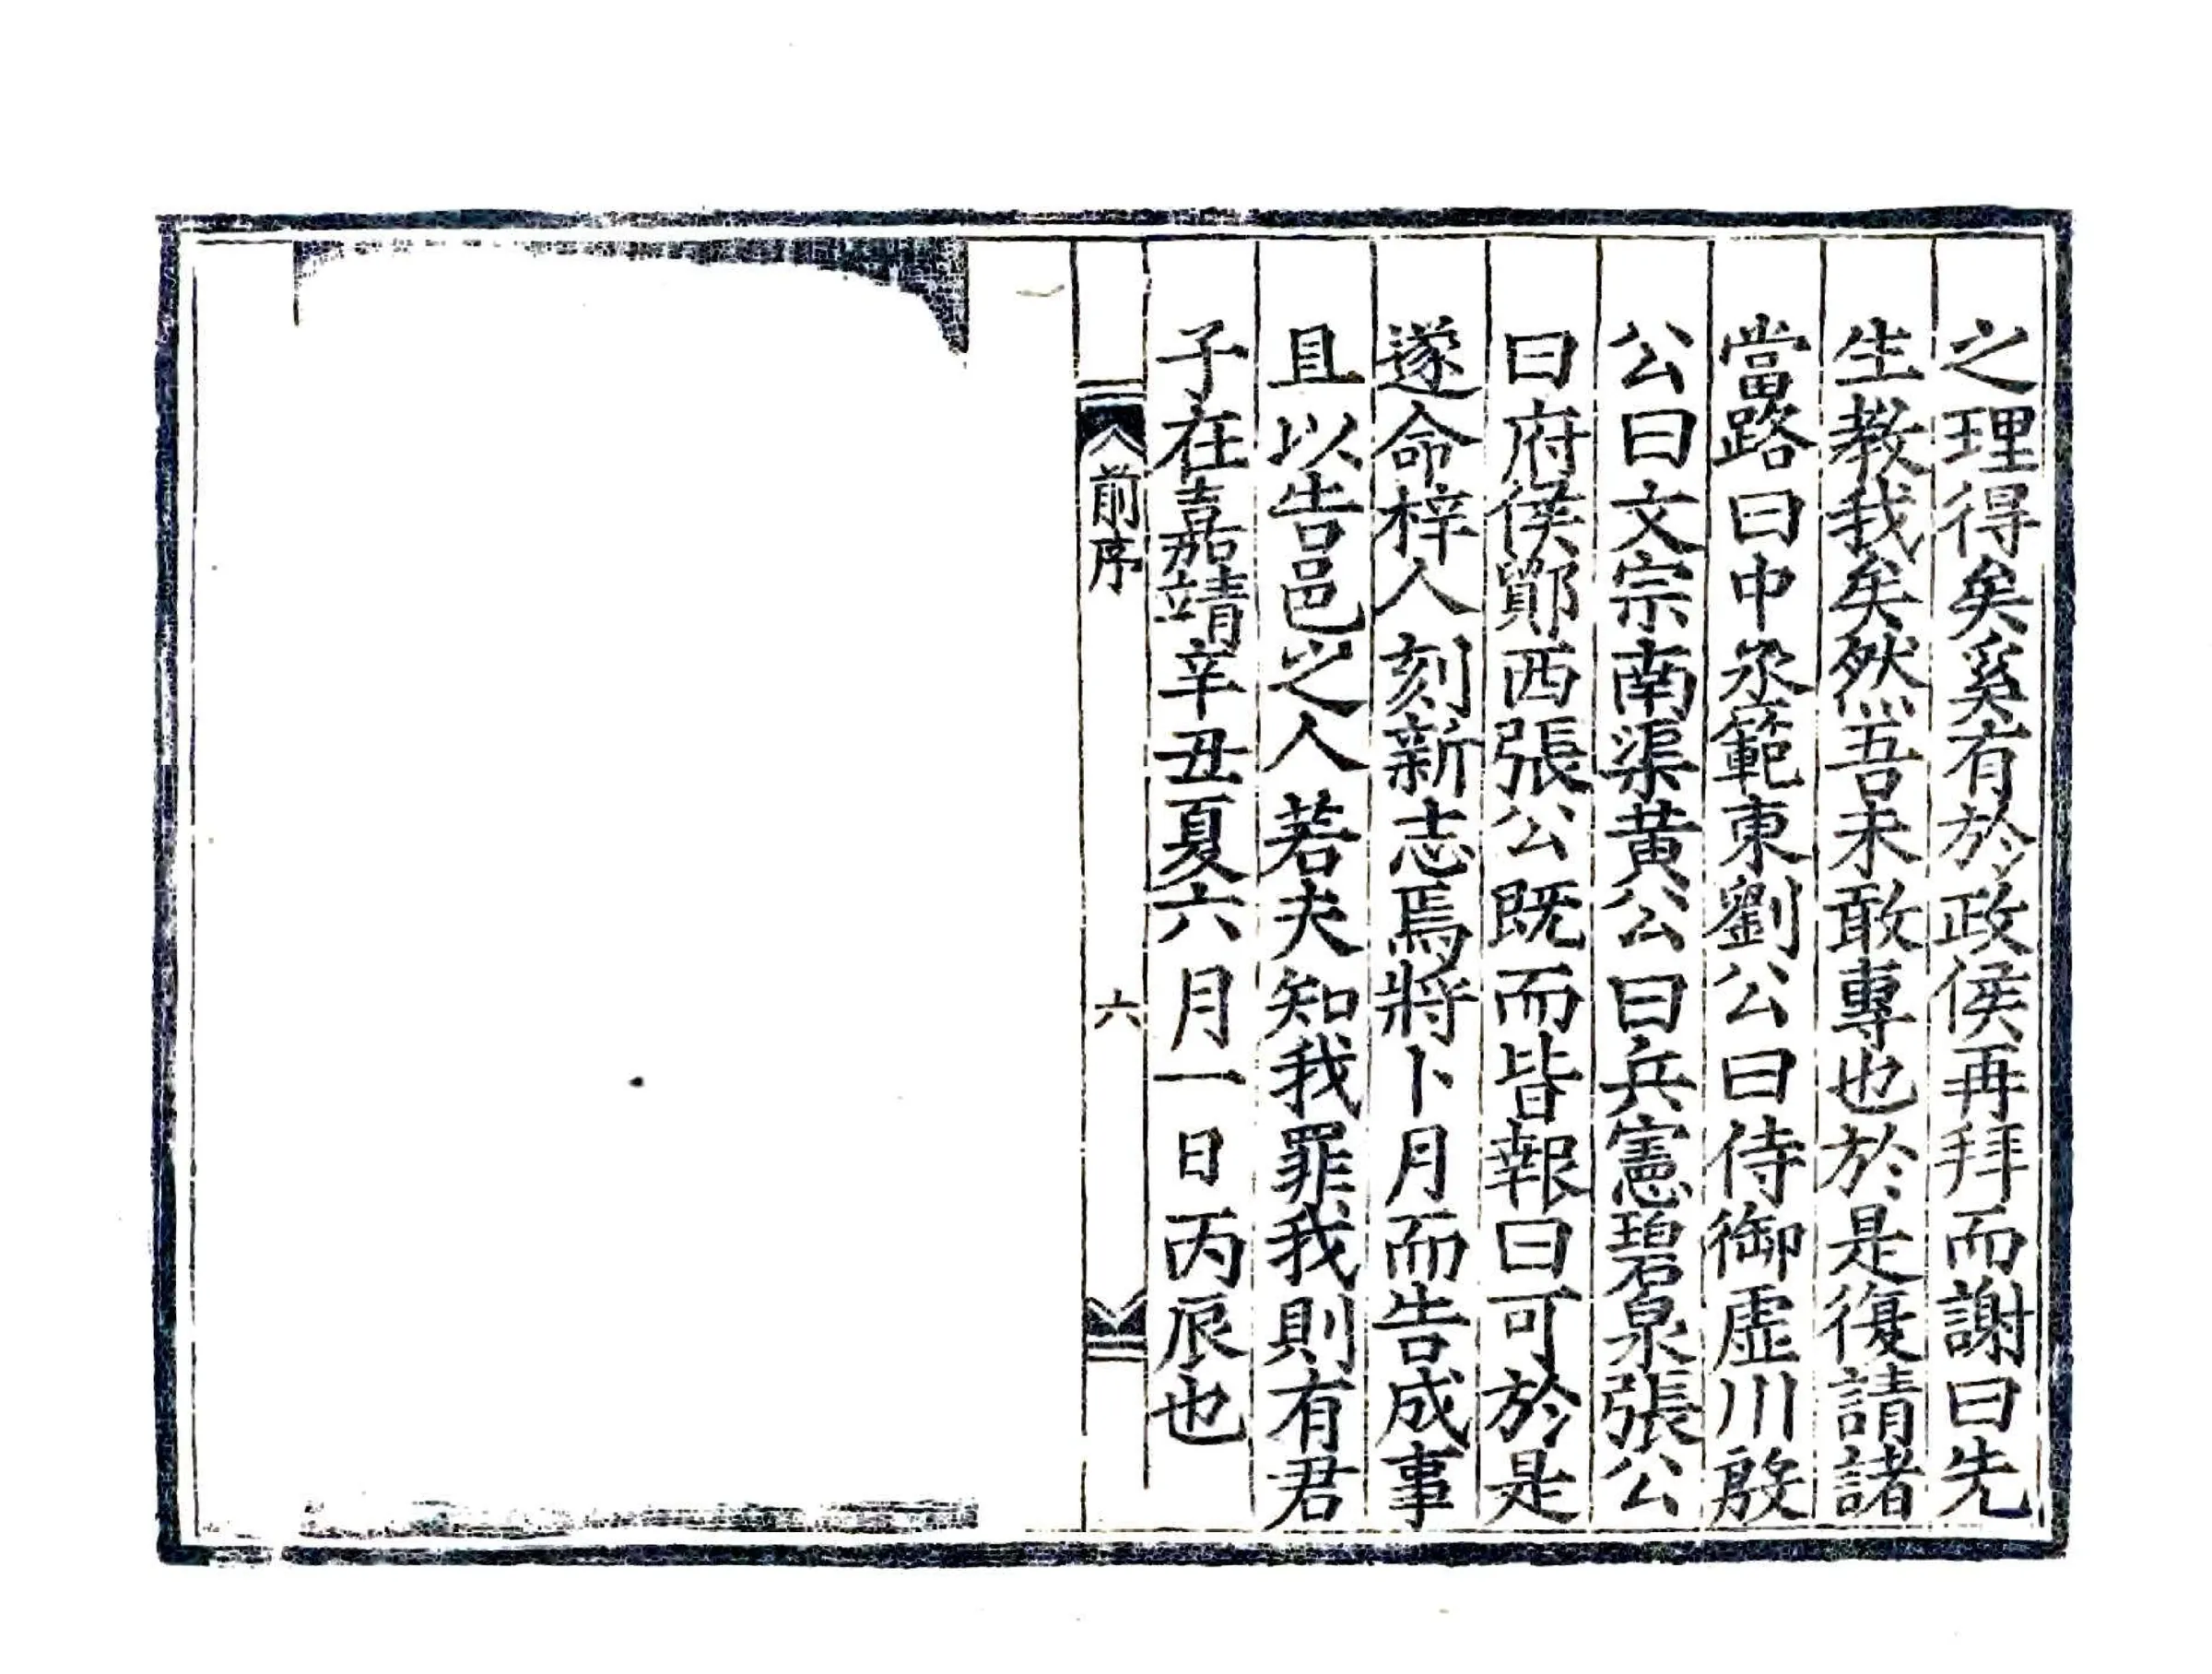 之理得矣奚有於政侯再拜而謝曰先
生教我矣然吾未敢專也於是復請諸
當路曰中丞範東劉公曰侍御虛川殷
公曰文宗南渠黃公曰兵憲碧泉張公
曰府侯鄖西張公既而皆報曰可於是
遂命梓人刻新志焉將卜月而告成事
且以告邑之人若夫知我罪我則有君
子在嘉靖辛丑夏六月一日丙辰也
前序
六